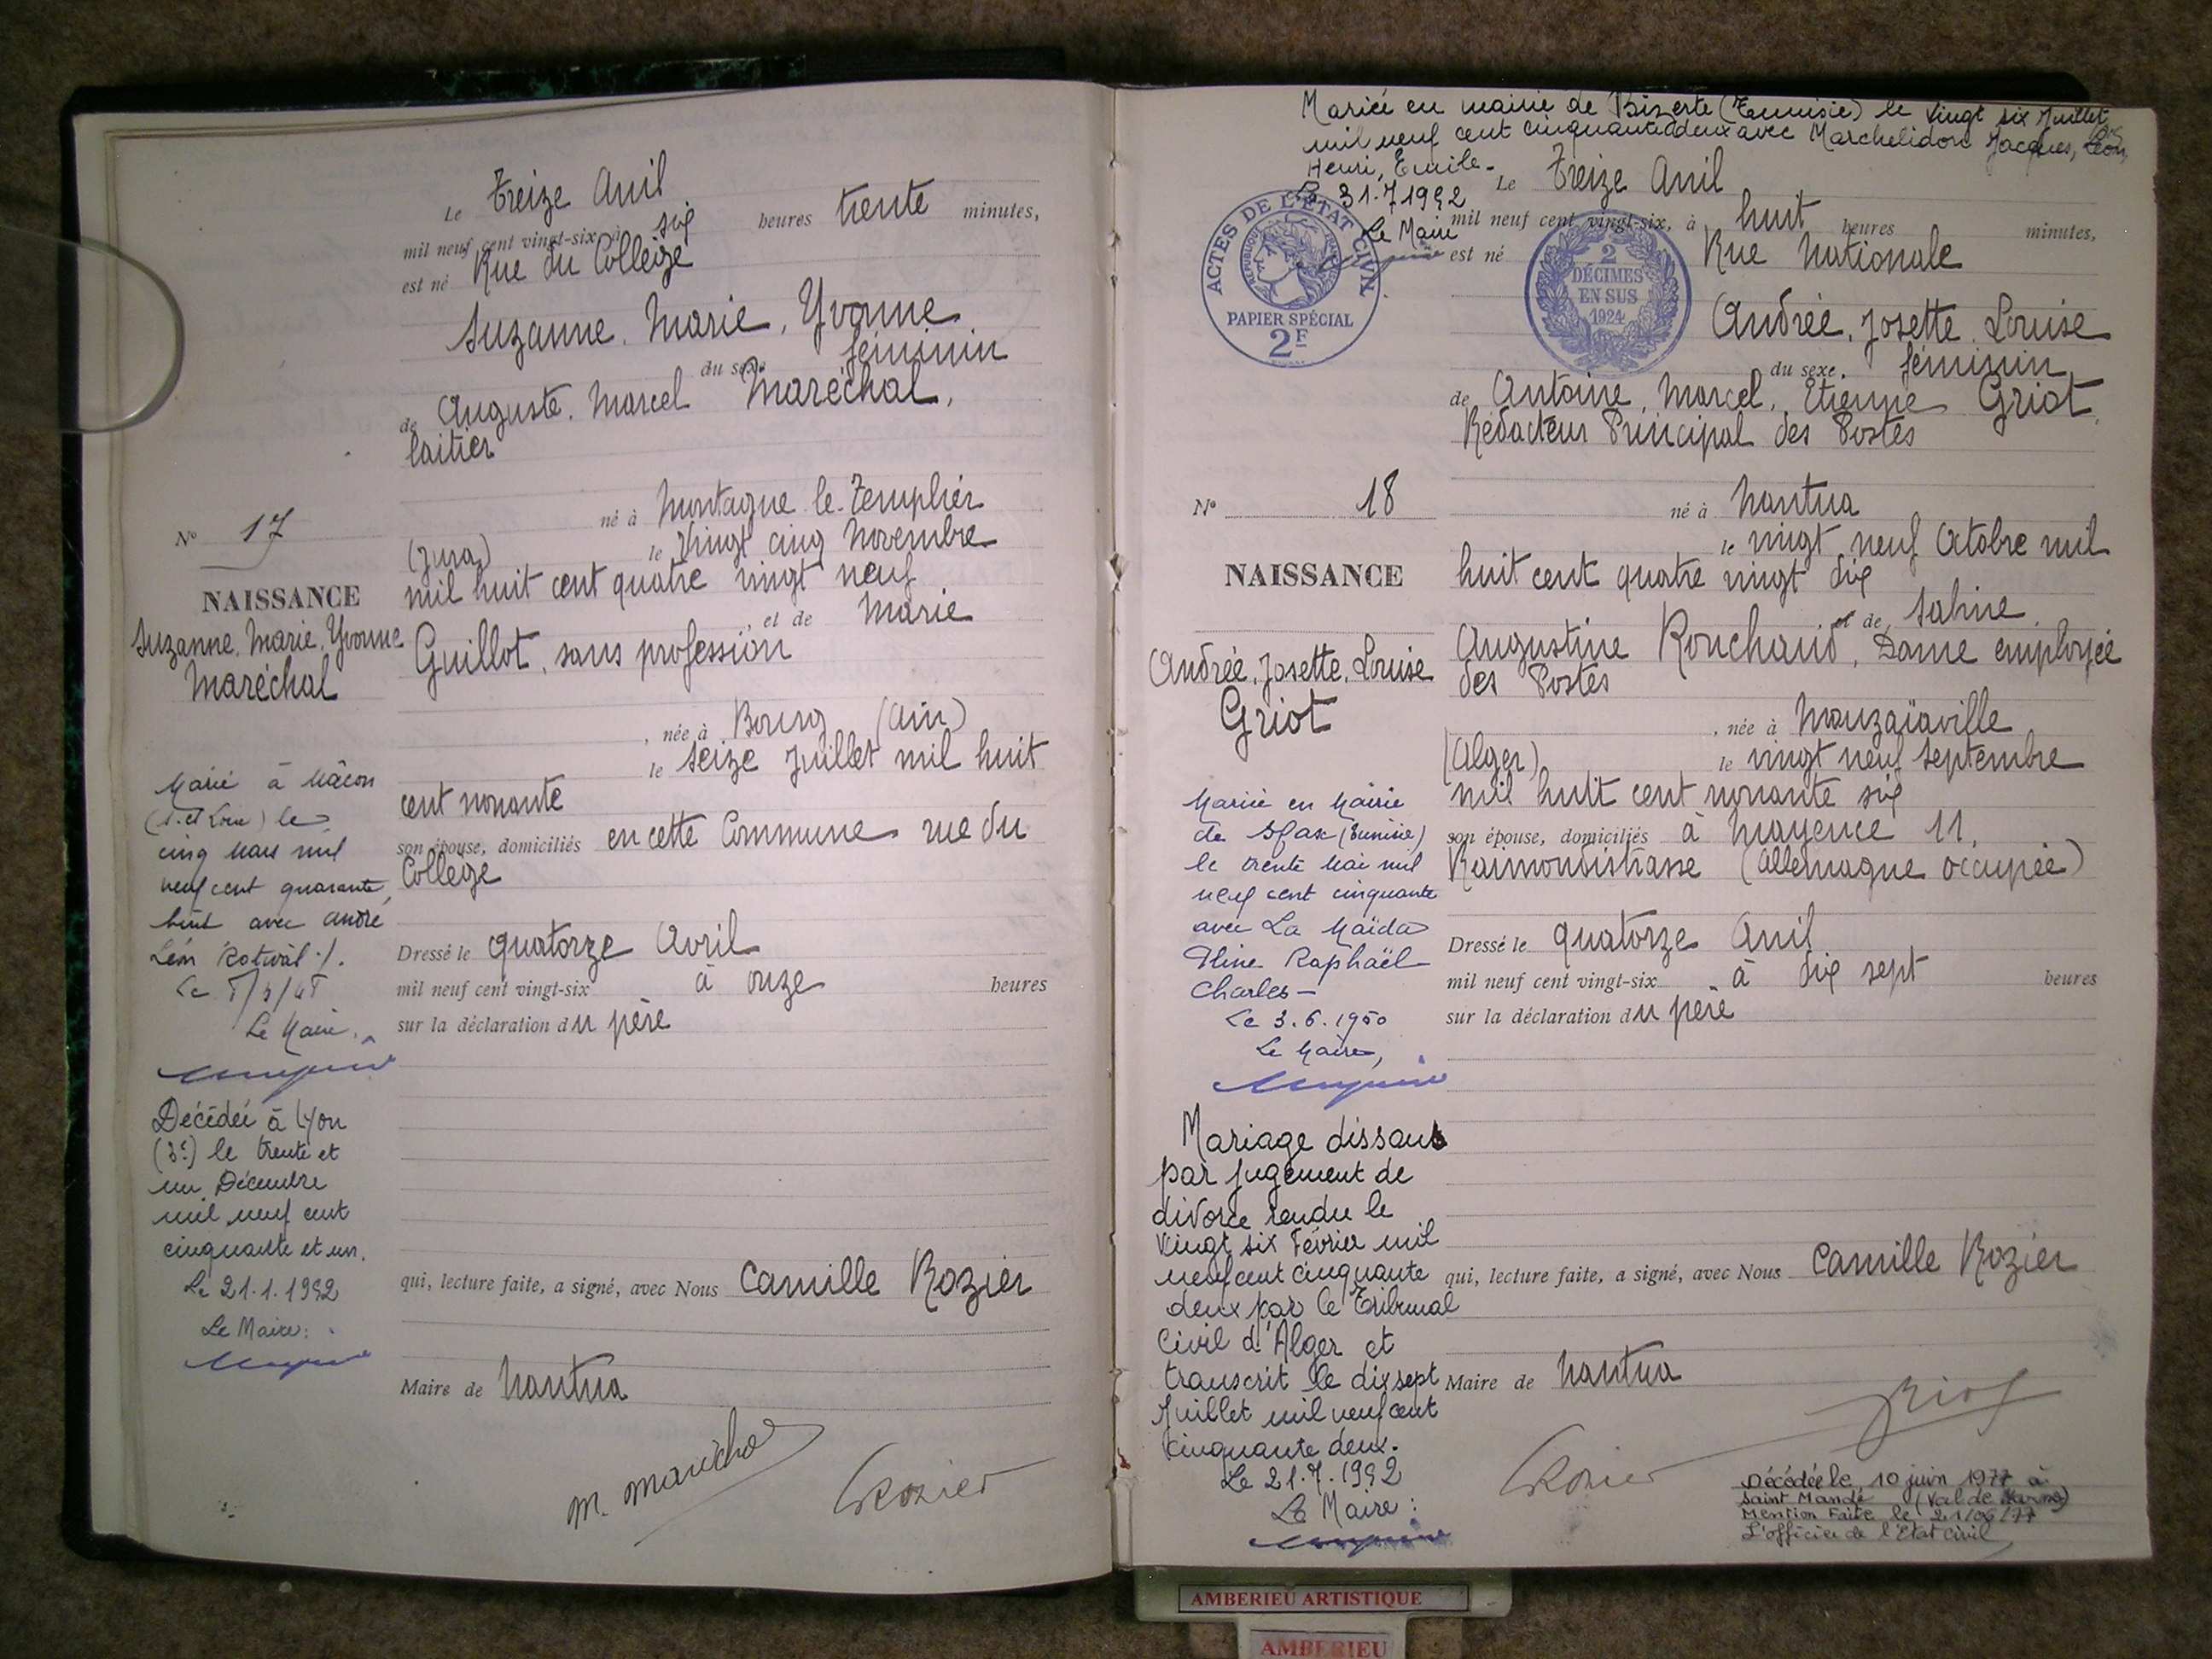 Le treize Avril
mil neuf cent vingt-six à six heures trente minutes,
est né Rue du Collège
Suzanne, Marie, Yvonne
du sexe féminin
de Auguste, Marcel Maréchal,
laitier
né à Montagna-le-Templier
(Jura) le vingt cinq Novembre
mil huit cent quatre vingt neuf
, et de Marie
Guillot, sans profession
, née à Bourg (Ain)
le seize Juillet mil huit
cent nonante
son épouse, domiciliés en cette Commune rue du
Collège
Dressé le quatorze Avril
mil neuf cent vingt-six à onze heures
sur la déclaration du père
qui, lecture faite, a signé, avec Nous Camille Rozier
Maire de Nantua
CRozier
N° 17
NAISSANCE
Suzanne, Marie, Yvonne
Maréchal
Marié à Mâcon
(S. et Loire) le
cinq Mars mil
neuf cent quarante
huit avec André
Léon
Le Maire,
Décédée à Lyon
(3e) le trente et
un Décembre
mil neuf cent
cinquante et un.
Le 21.1.1952
Le Maire:
Mariée en mairie de Bizerte (Tunisie) le vingt six Juillet
mil neuf cent cinquante deux avec Marchelidon Jacques, Léon,
Henri, Emile-
Le 31.7.1952
Le Maire
ACTES DE L'ÉTAT CIVIL
RÉPUBLIQUE
PAPIER SPÉCIAL
2F
2
DÉCIMES
EN SUS
1924
Le treize Avril
mil neuf cent vingt-six, à huit heures minutes,
est né Rue Nationale
Andrée, Josette, Louise
du sexe féminin
de Antoine, Marcel, Etienne Griot,
Rédacteur Principal des Postes
né à Nantua
le vingt neuf Octobre mil
huit cent quatre vingt dix
, et de Sabine,
Augustine Ronchaud, Dame employée
des Postes
, née à Mouzaïaville
(Alger) le vingt neuf Septembre
mil huit cent nonante six
son épouse, domiciliés à Mayence 11,
Raimondistrasse (Allemagne occupée)
Dressé le quatorze Avril
mil neuf cent vingt-six à dix sept heures
sur la déclaration du père
qui, lecture faite, a signé, avec Nous Camille Rozier
Maire de Nantua
Griot
CRozier
N° 18
NAISSANCE
Andrée, Josette, Louise
Griot
Mariée en Mairie
de Sfax (Tunisie)
le trente Mai mil
neuf cent cinquante
avec La Maïda
Raphaël
Charles -
Le 3.6.1950
Le Maire,
Mariage dissous
par jugement de
divorce rendu le
vingt six Février mil
neuf cent cinquante
deux par le Tribunal
Civil d'Alger et
transcrit le dix sept
Juillet mil neuf cent
cinquante deux.
Le 21.7.1952
Le Maire:
Décédée le 10 juin 1977 à
Saint Mandé (Val de Marne)
Mention Faite le 21/06/77
L'officier de l'Etat Civil
AMBERIEU ARTISTIQUE
AMBERIEU